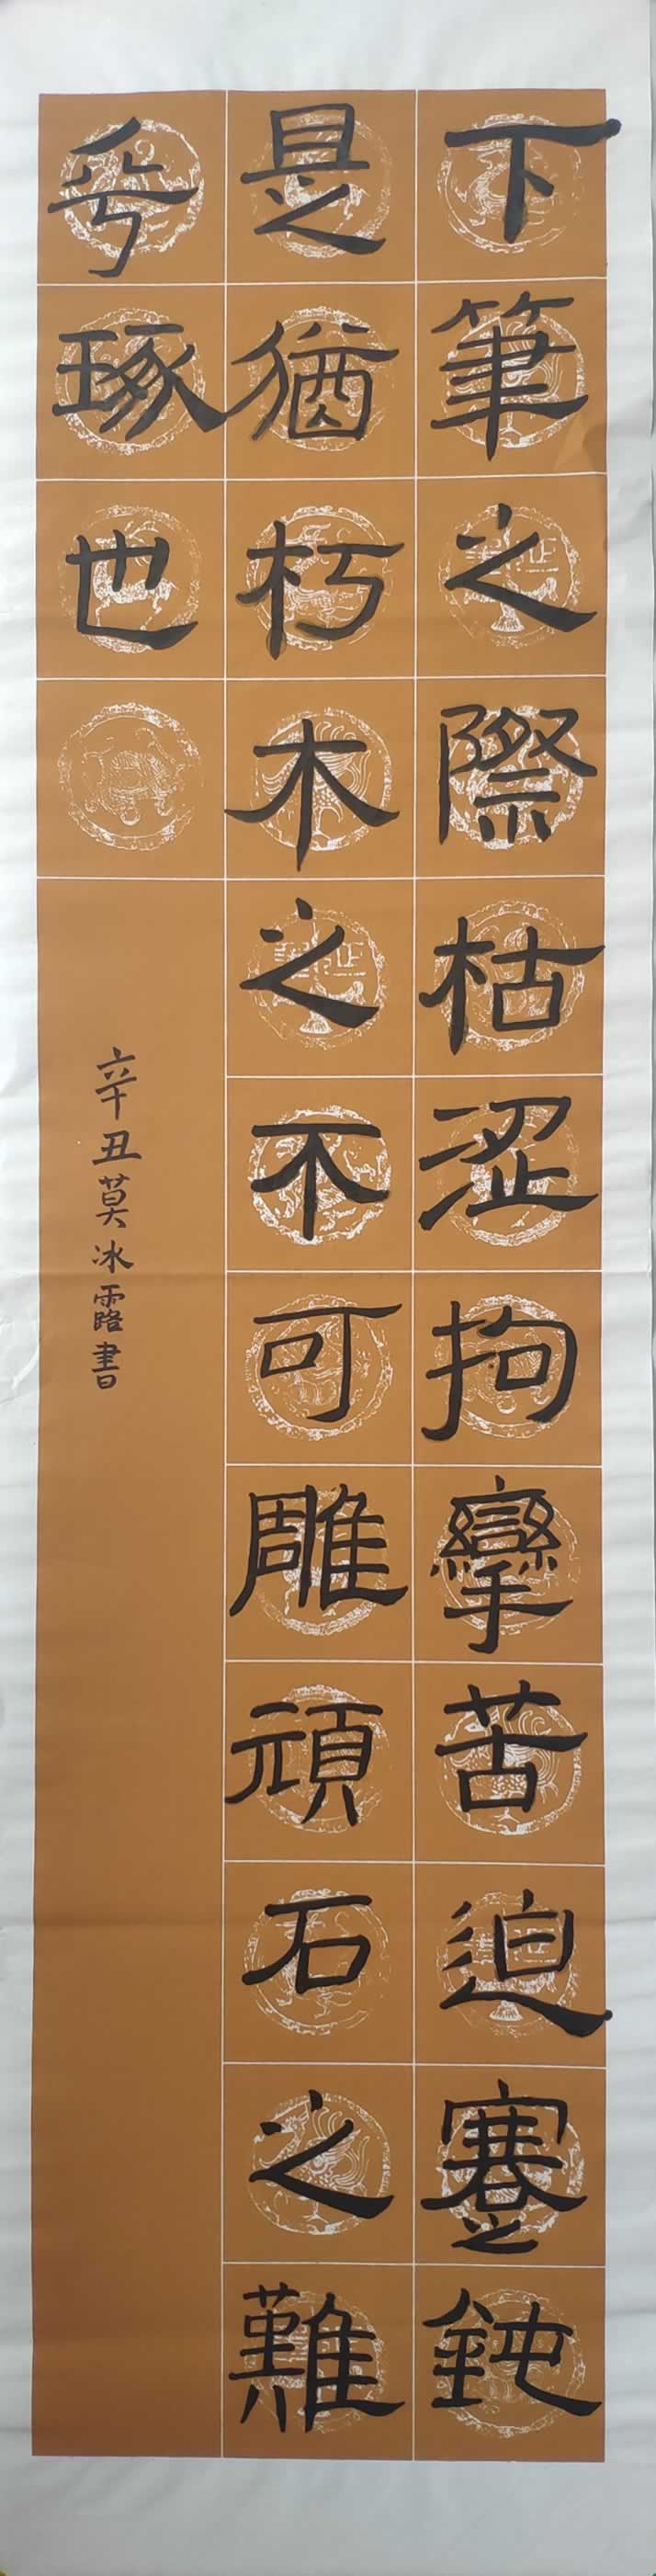 下筆之際枯涩拘攣苦迫蹇鈍
是猶朽木之不可雕頑石之難
乎琢也
辛丑莫冰露書